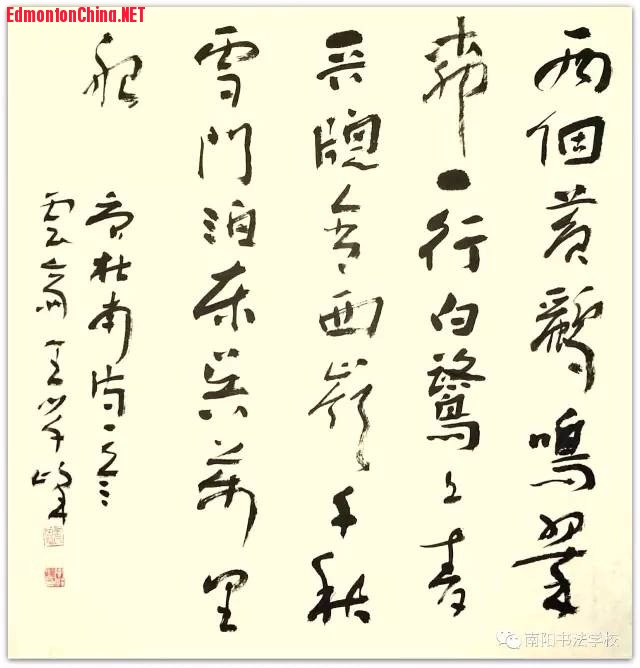 EdmontonChina.NET
兩個黃鸝鳴翠
柳一行白鷺上青
天窗含西嶺千秋
雪門泊東吳萬里
船
杜甫诗
雲齋王学峰
南阳书法学校